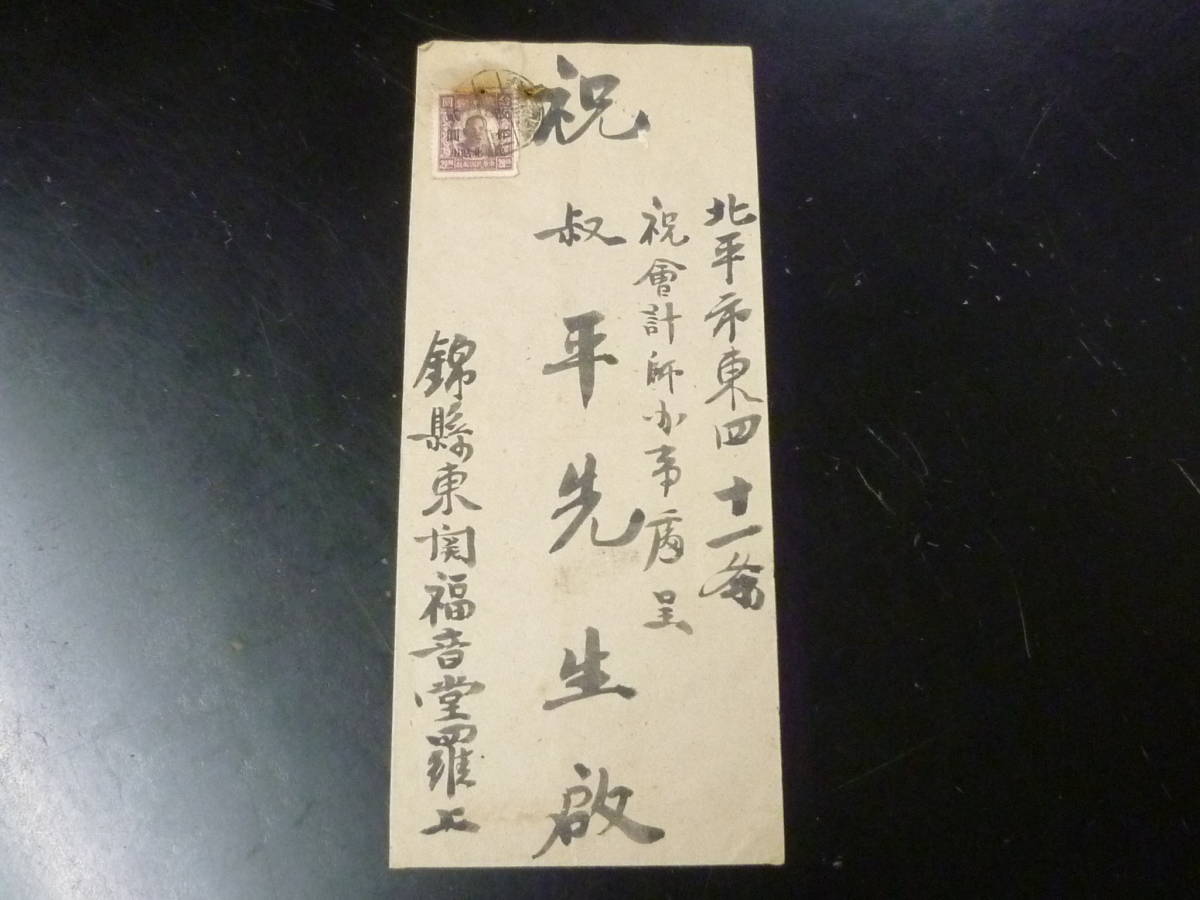 北平市東四十一条
祝會計師办事處呈
祝叔平先生啟
錦縣東関福音堂羅上